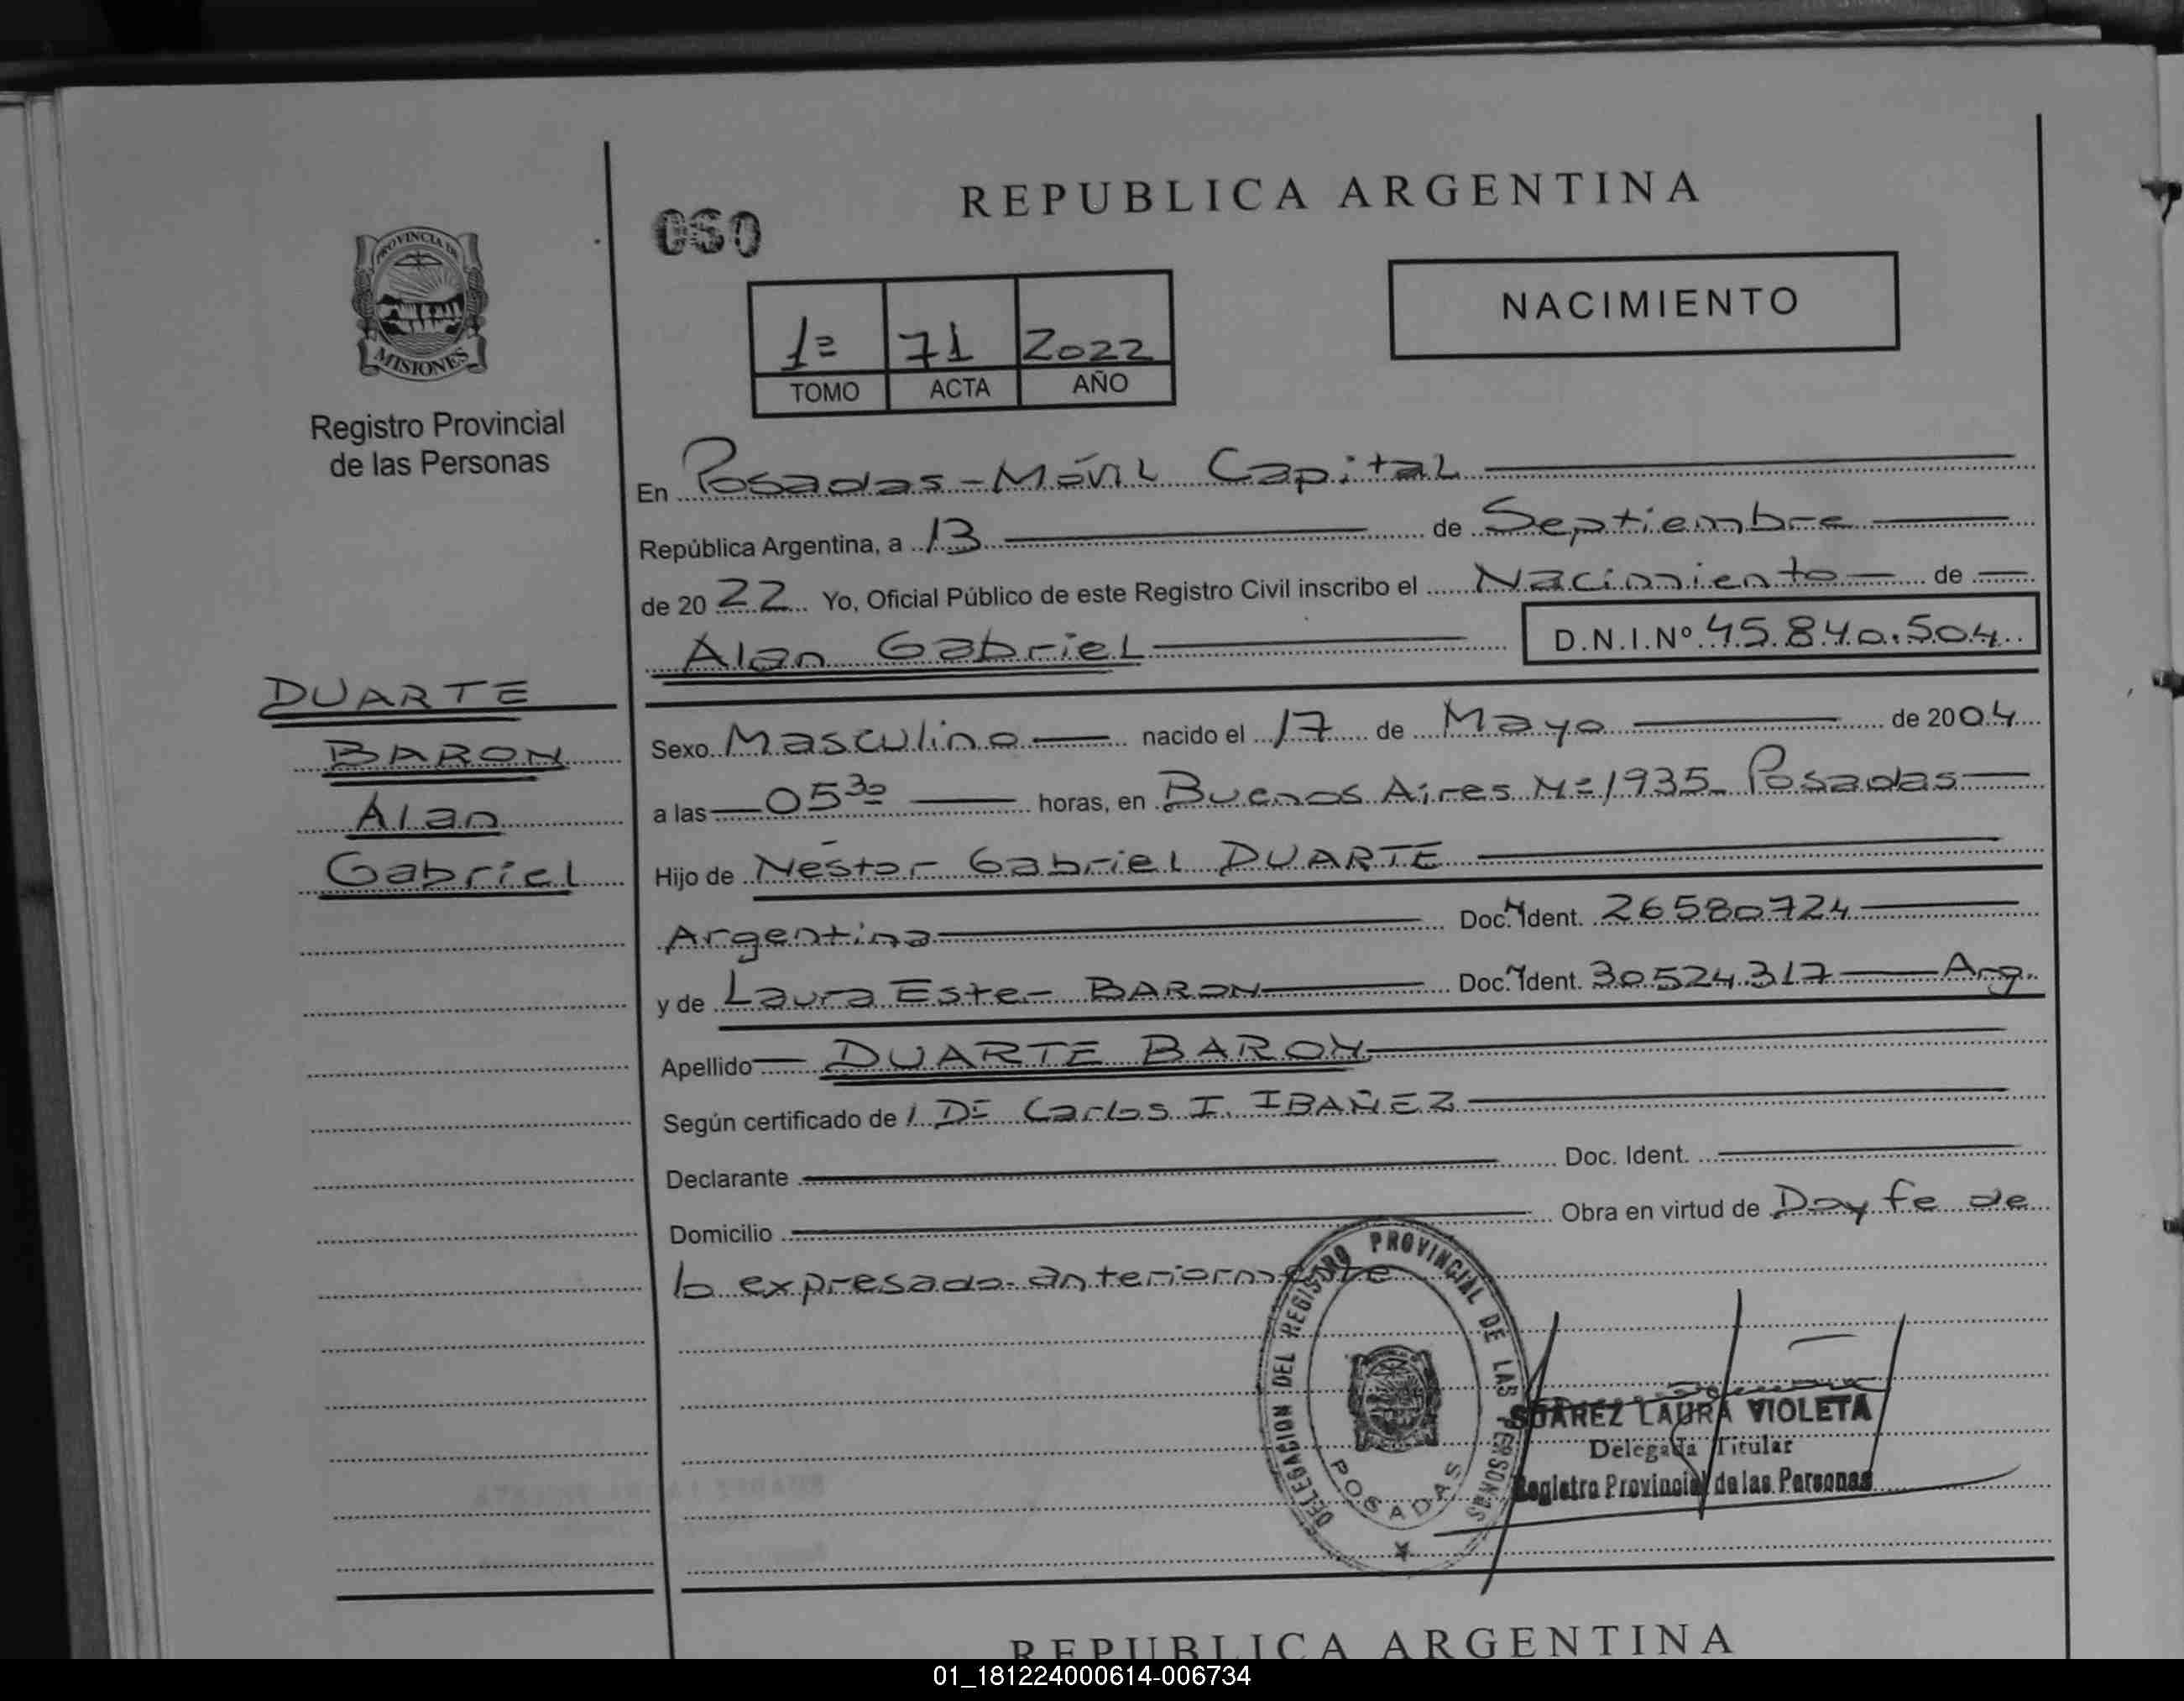 REPUBLICA ARGENTINA
060
NACIMIENTO
PROVINCIA DE
MISIONES
Registro Provincial
de las Personas
1º 71 2022
TOMO ACTA AÑO
En Posadas - Móvil Capital
República Argentina, a 13 de Septiembre
de 20 22 Yo, Oficial Público de este Registro Civil inscribo el Nacimiento de
Alan Gabriel D.N.I.Nº 45.840.504
DUARTE
BARON
Alan
Gabriel
Sexo Masculino nacido el 17 de Mayo de 2004
a las 05 30 horas, en Buenos Aires Nº 1935 - Posadas
Hijo de Néstor Gabriel DUARTE
Argentina Doc. Ident. 26580724
y de Laura Ester BARON Doc. Ident. 30.524.317 Arg.
Apellido DUARTE BARON
Según certificado de Carlos I. IBAÑEZ
Declarante Doc. Ident.
Domicilio Obra en virtud de Doy fe de
lo expresado anteriormente
DELEGACION DEL REGISTRO PROVINCIAL DE LAS PERSONAS
POSADAS
SUAREZ LAURA VIOLETA
Delegada Titular
Registro Provincial de las Personas
REPUBLICA ARGENTINA
01_181224000614-006734